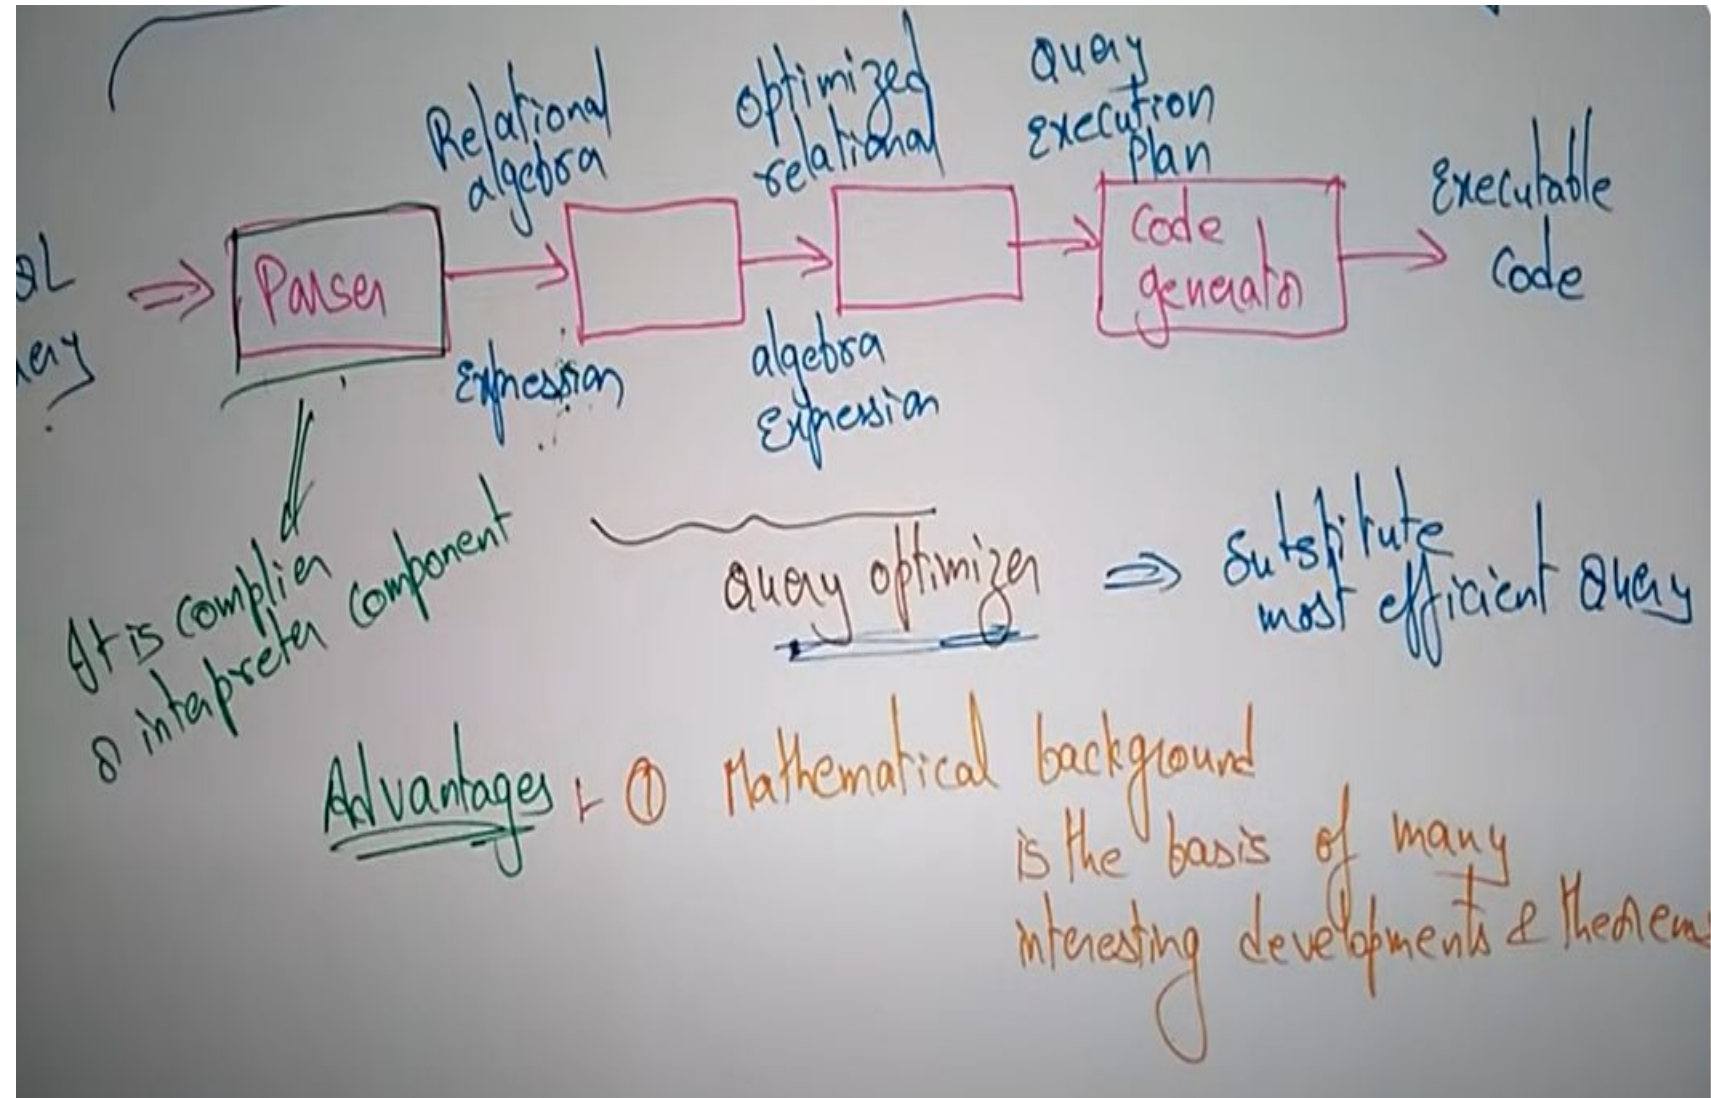 QL
uery
Parser
Relational
algebra
Expression
optimized
relational
algebra
Expression
Query
Execution
Plan
Code
generator
Executable
Code
It is complier
or interpreter component
Query optimizer ⇒ Substitute
most efficient Query
Advantages :- ① Mathematical background
is the basis of many
interesting developments & theorems